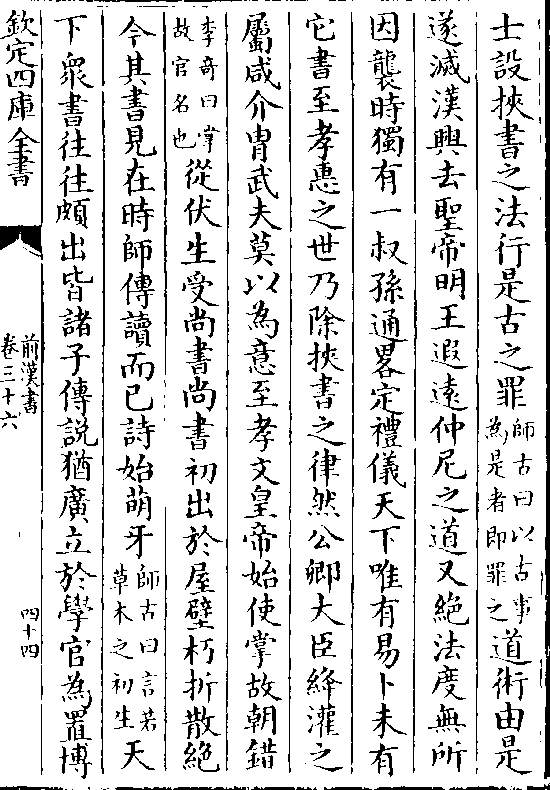 士設挾書之法行是古之罪師古曰以古事為是者即罪之道術由是
遂滅漢興去聖帝明王遐逺仲尼之道又絶法度無所
因襲時獨有一叔孫通畧定禮儀天下唯有易卜未有
它書至孝惠之世乃除挾書之律然公卿大臣絳灌之
屬咸介胄武夫莫以為意至孝文皇帝始使掌故朝錯
李奇曰掌故官名也從伏生受尚書尚書初出於屋壁朽折散絶
今其書見在時師傳讀而已詩始萌牙師古曰言若草木之初生天
下衆書往往頗出皆諸子傳説猶廣立於學官為置博
欽定四庫全書
前漢書
卷三十六
四十四